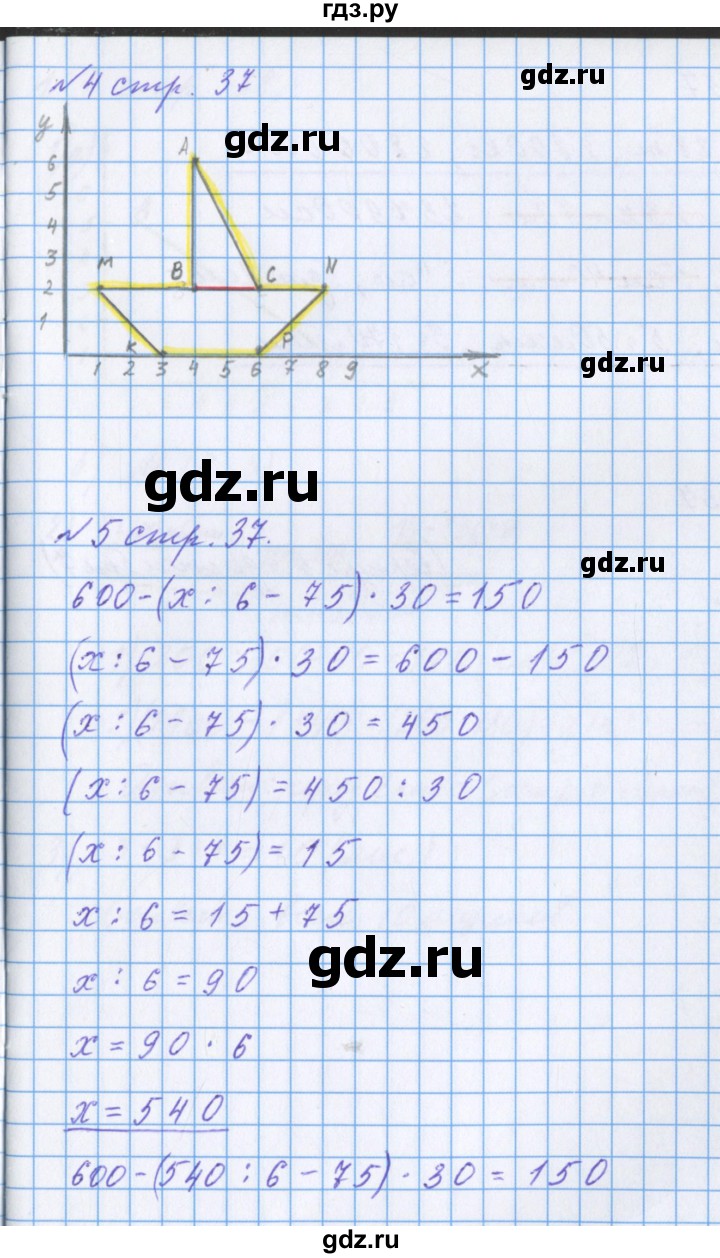 гдз.ру
№4 стр. 37
gdz.ru
y
A
gdz.ru
6
5
4
3
M B C N
2
1
K P
gdz.ru
1 2 3 4 5 6 7 8 9 x
gdz.ru
№5 стр. 37.
gdz.ru
600-(x : 6 - 75) · 30 = 150
(x : 6 - 75) · 30 = 600 - 150
(x : 6 - 75) · 30 = 450
(x : 6 - 75) = 450 : 30
(x : 6 - 75) = 15
x : 6 = 15 + 75
gdz.ru
x : 6 = 90
x = 90 · 6
x = 540
600-(540 : 6 - 75) · 30 = 150
gdz.ru